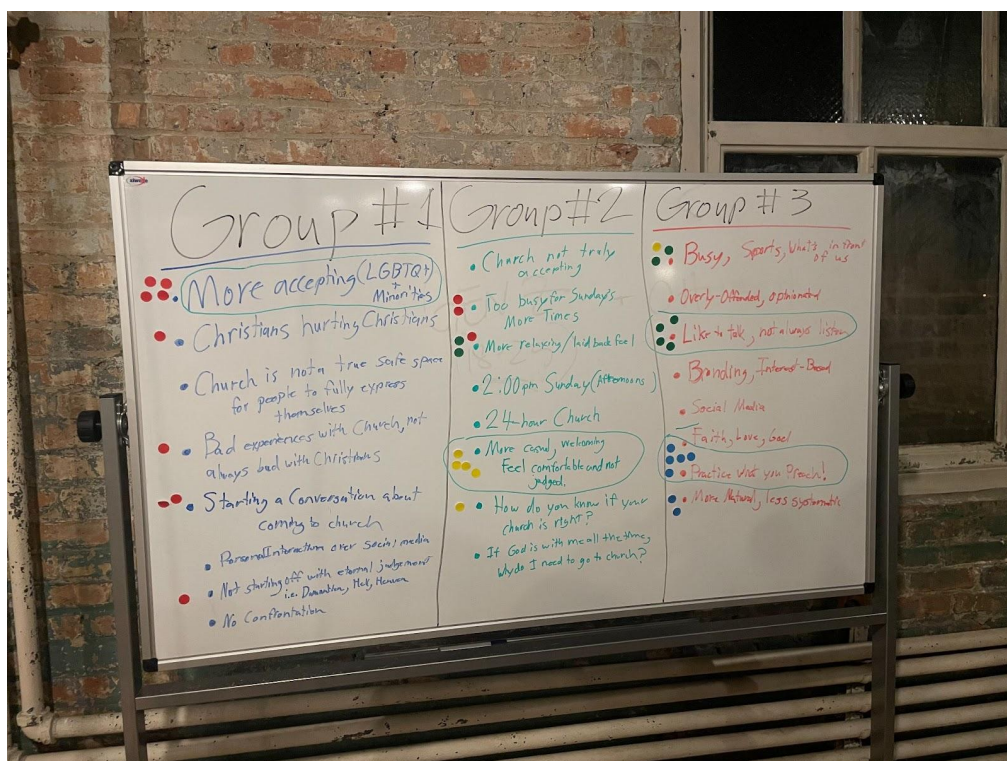 Group #1
More accepting (LGBTQ+
+
Minorities
Christians hurting Christians
Church is not a true safe space
for people to fully express
themselves
Bad experiences with Church, not
always bad with Christians
Starting a Conversation about
coming to church
Personal Interaction over Social media
Not starting off with eternal judgement
i.e. Damnation, Hell, Heaven
No Confrontation
Group #2
Church not truly
accepting
Too busy for Sunday's
More Times
More relaxing/laid back feel
2:00pm Sunday (Afternoons)
24-hour Church
More casual, welcoming
Feel comfortable and not
judged.
How do you know if your
church is right?
If God is with me all the time,
why do I need to go to church?
Group #3
Busy, Sports, what's in front
of us
Overly-Offended, opinionated
Like to talk, not always listen
Branding, Interest-Based
Social Media
Faith, Love, God
Practice what you Preach!
More Natural, less systematic